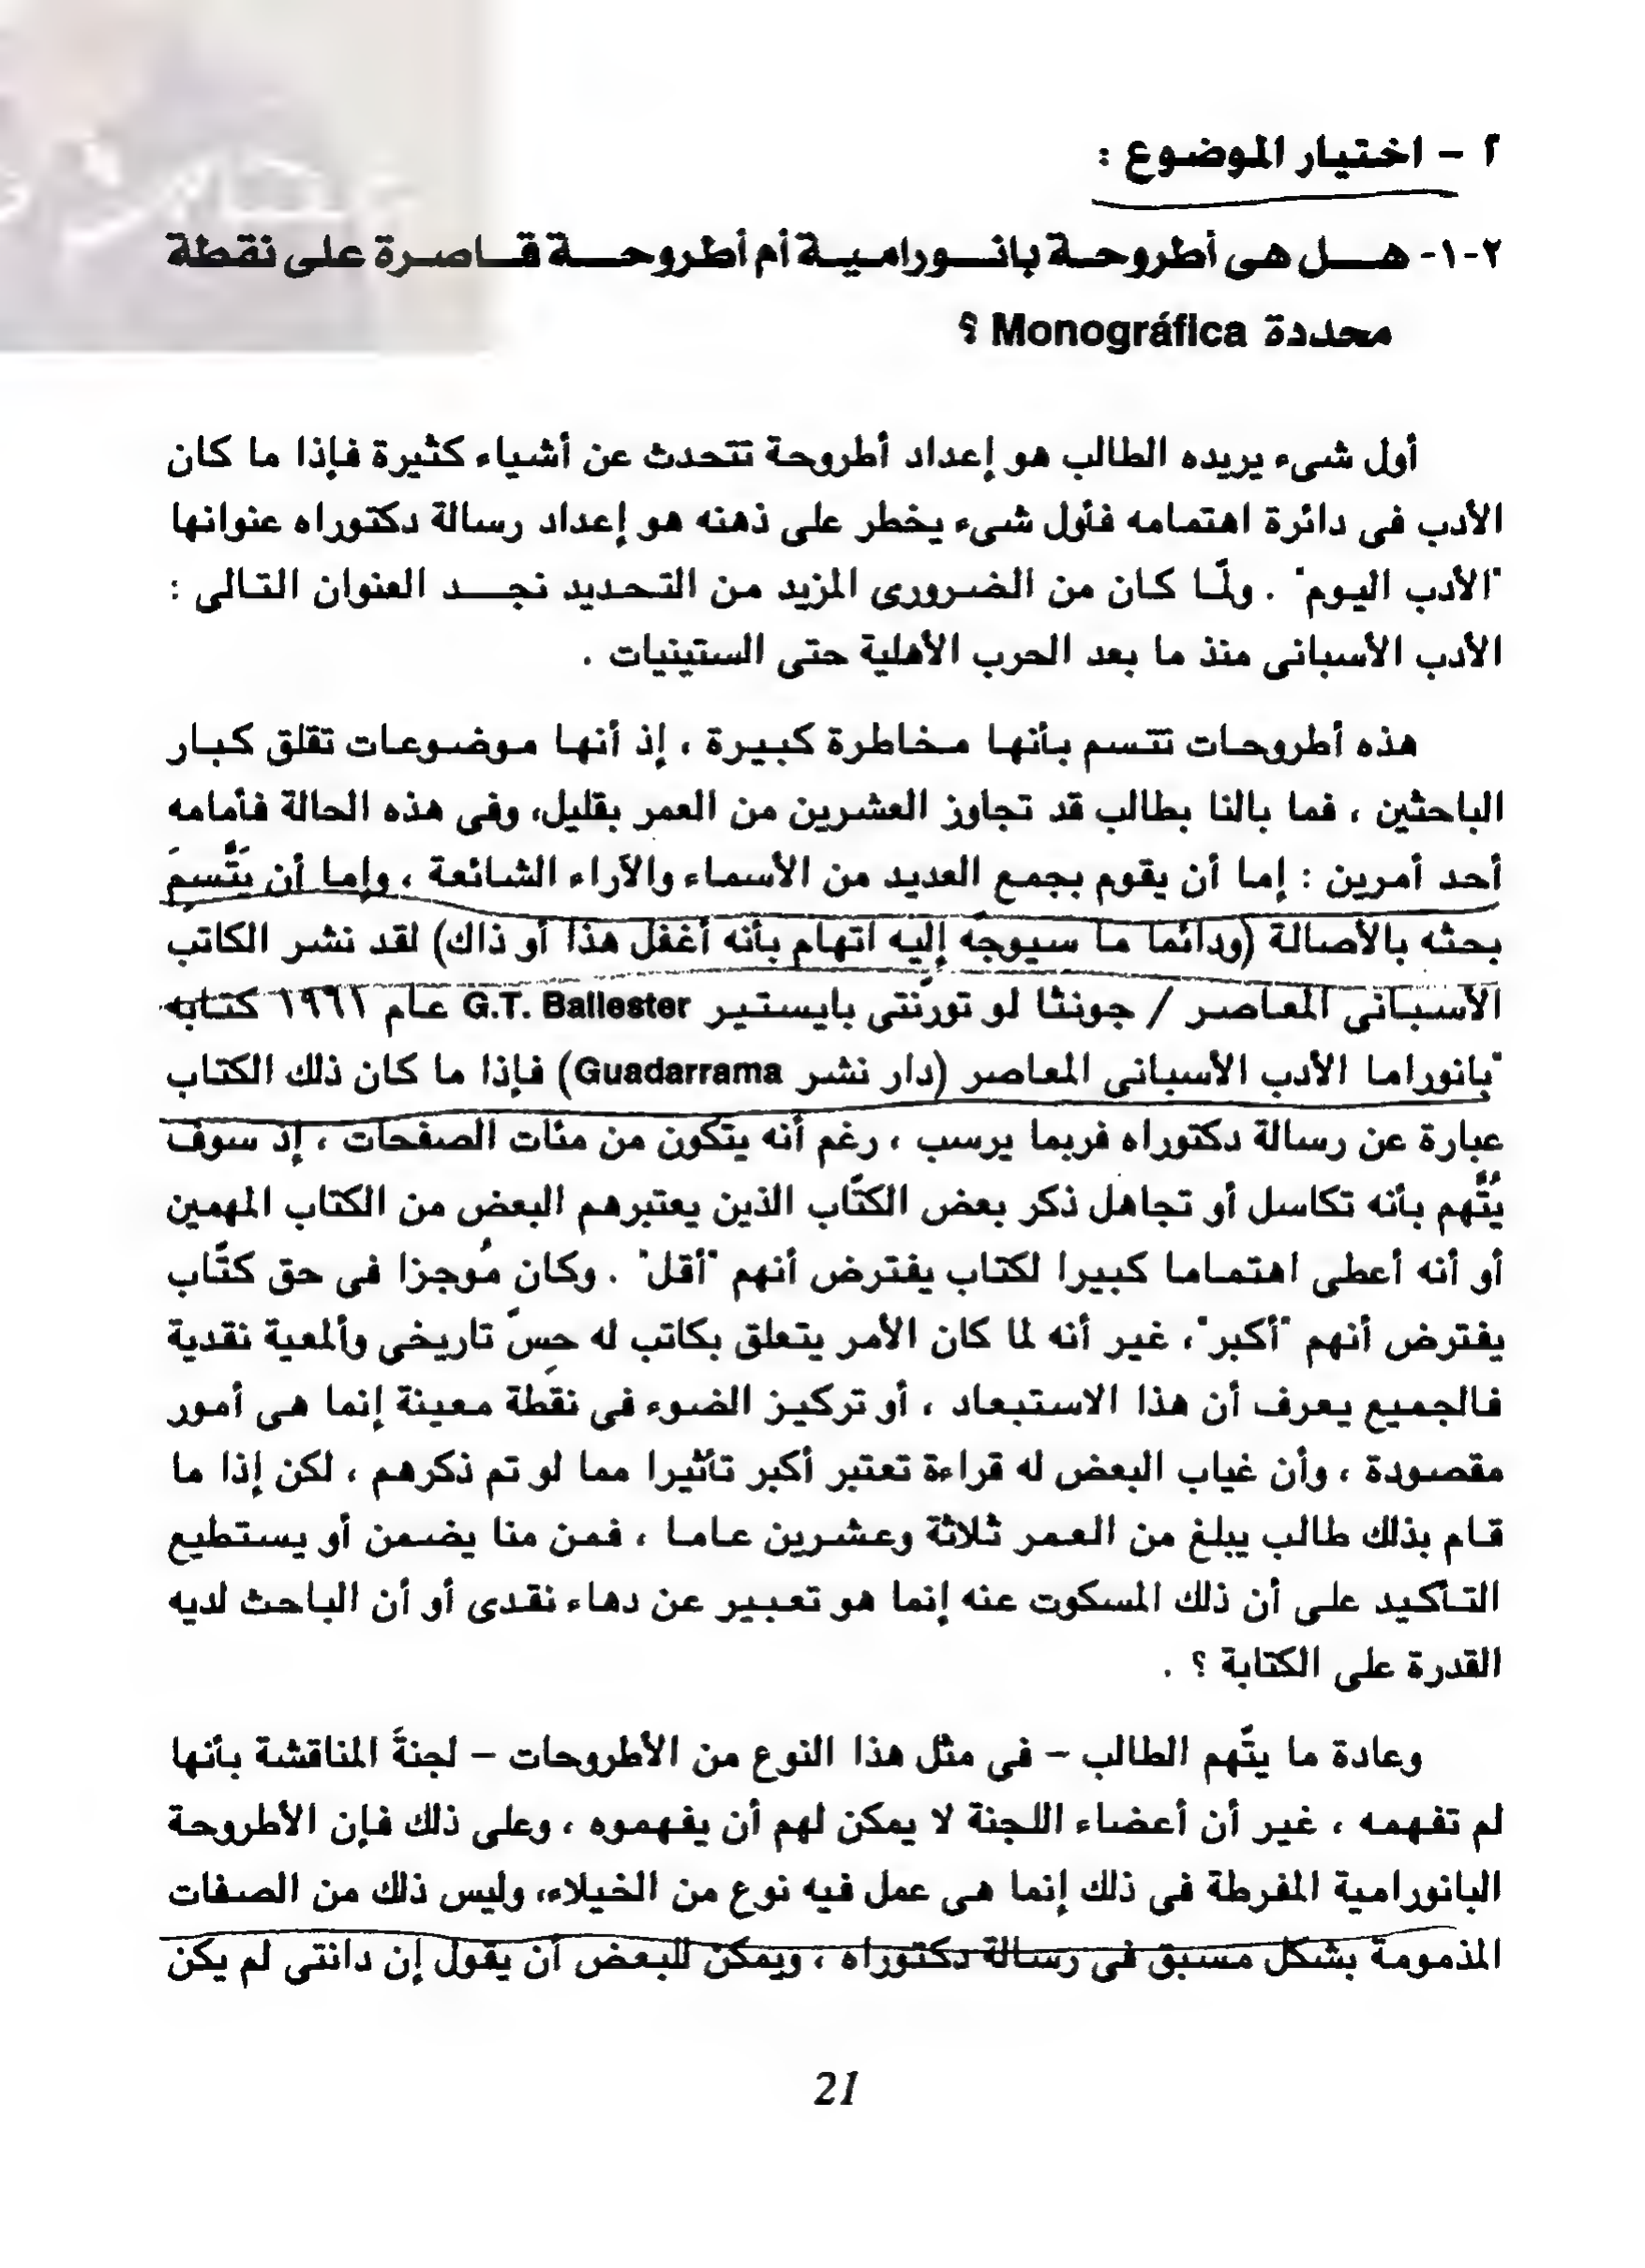 ٢ – اختيار الموضوع :
٢-١- هل هى أطروحة بانورامية أم أطروحة قاصرة على نقطة
محددة Monográfica ؟
أول شىء يريده الطالب هو إعداد أطروحة تتحدث عن أشياء كثيرة فإذا ما كان
الأدب فى دائرة اهتمامه فأول شىء يخطر على ذهنه هو إعداد رسالة دكتوراه عنوانها
"الأدب اليوم" . ولّما كان من الضرورى المزيد من التحديد نجد العنوان التالى :
الأدب الأسبانى منذ ما بعد الحرب الأهلية حتى الستينيات .
هذه أطروحات تتسم بأنها مخاطرة كبيرة ، إذ أنها موضوعات تقلق كبار
الباحثين ، فما بالنا بطالب قد تجاوز العشرين من العمر بقليل، وفى هذه الحالة فأمامه
أحد أمرين : إما أن يقوم بجمع العديد من الأسماء والآراء الشائعة ، وإما أن يَتَّسمَ
بحثه بالأصالة (ودائما ما سيوجه إليه اتهام بأنه أغفل هذا أو ذاك) لقد نشر الكاتب
الأسبانى المعاصر / جونثا لو تورّنتى بايستير G.T. Ballester عام ١٩٦١ كتابه
"بانوراما الأدب الأسبانى المعاصر (دار نشر Guadarrama) فإذا ما كان ذلك الكتاب
عبارة عن رسالة دكتوراه فربما يرسب ، رغم أنه يتكون من مئات الصفحات ، إذ سوف
يُتَّهم بأنه تكاسل أو تجاهل ذكر بعض الكتّاب الذين يعتبرهم البعض من الكتاب المهمين
أو أنه أعطى اهتماما كبيرا لكتاب يفترض أنهم "أقل" . وكان مُوجزا فى حق كتّاب
يفترض أنهم "أكبر"، غير أنه لما كان الأمر يتعلق بكاتب له حِسّ تاريخى وألمعية نقدية
فالجميع يعرف أن هذا الاستبعاد ، أو تركيز الضوء فى نقطة معينة إنما هى أمور
مقصودة ، وأن غياب البعض له قراءة تعتبر أكبر تأثيرا مما لو تم ذكرهم ، لكن إذا ما
قام بذلك طالب يبلغ من العمر ثلاثة وعشرين عاما ، فمن منا يضمن أو يستطيع
التأكيد على أن ذلك المسكوت عنه إنما هو تعبير عن دهاء نقدى أو أن الباحث لديه
القدرة على الكتابة ؟ .
وعادة ما يتّهم الطالب – فى مثل هذا النوع من الأطروحات – لجنةَ المناقشة بأنها
لم تفهمه ، غير أن أعضاء اللجنة لا يمكن لهم أن يفهموه ، وعلى ذلك فإن الأطروحة
البانورامية المفرطة فى ذلك إنما هى عمل فيه نوع من الخيلاء، وليس ذلك من الصفات
المذمومة بشكل مسبق فى رسالة دكتوراه ، ويمكن للبعض أن يقول إن دانتى لم يكن
21